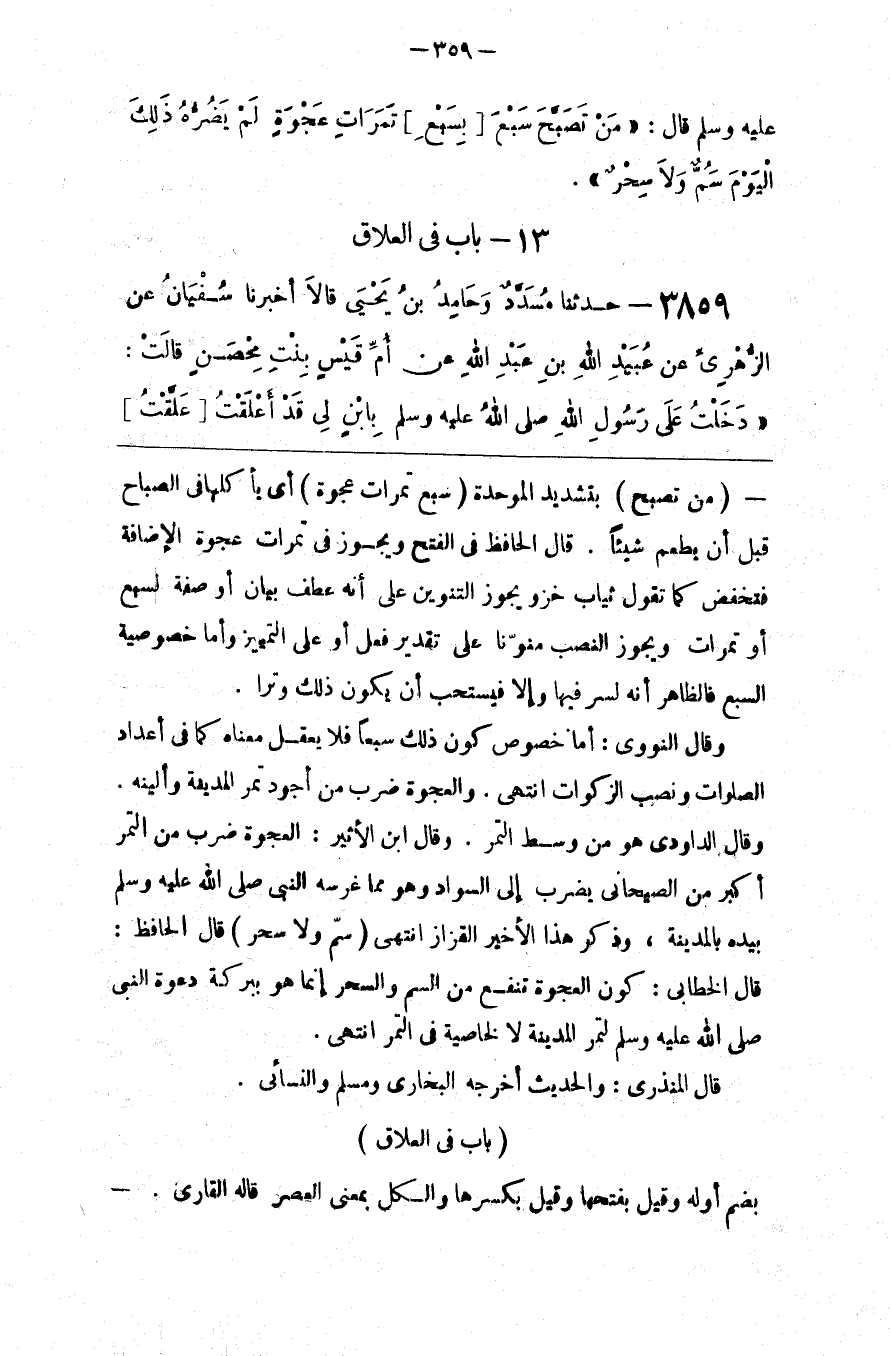 — ٣٥٩ —
عليه وسلم قال : « مَنْ تَصَبَّحَ سَبْعَ [ بِسَبْعِ ] تَمَرَاتِ عَجْوَةٍ لَمْ يَضُرُّهُ ذَلِكَ
الْيَوْمَ سَمٌّ وَلاَ سِحْرٌ » .
١٣ — باب فى العلاق
٣٨٥٩ — حدثنا مُسَدَّدٌ وَحَامِدُ بنُ يَحْيَى قالاَ أخبرنا سُفْيَانُ عن
الزُّهْرِىِّ عن عُبَيْدِ اللهِ بنِ عَبْدِ اللهِ عن أُمِّ قَيْسٍ بِنْتِ مِحْصَنٍ قالَتْ :
« دَخَلْتُ عَلَى رَسُولِ اللهِ صلى اللهُ عليه وسلم بِابْنٍ لِى قَدْ أَعْلَقْتُ [ عَلَّقْتُ ]
— ( من تصبح ) بتشديد الموحدة ( سبع تمرات عجوة ) أى يأكلها فى الصباح
قبل أن يطعم شيئاً . قال الحافظ فى الفتح ويجوز فى تمرات عجوة الإضافة
فتخفض كما تقول ثياب خز ويجوز التنوين على أنه عطف بيان أو صفة لسبع
أو تمرات ويجوز النصب منوّنا على تقدير فعل أو على التمييز وأما خصوصية
السبع فالظاهر أنه لسر فيها وإلا فيستحب أن يكون ذلك وترا .
وقال النووى : أما خصوص كون ذلك سبعاً فلا يعقل معناه كما فى أعداد
الصلوات ونصب الزكوات انتهى . والعجوة ضرب من أجود تمر المدينة وألينه .
وقال الداودى هو من وسط التمر . وقال ابن الأثير : العجوة ضرب من التمر
أكبر من الصيحانى يضرب إلى السواد وهو مما غرسه النبى صلى الله عليه وسلم
بيده بالمدينة ، وذكر هذا الأخير القزاز انتهى ( سمّ ولا سحر ) قال الحافظ :
قال الخطابى : كون العجوة تنفع من السم والسحر إنما هو ببركة دعوة النبى
صلى الله عليه وسلم لتمر المدينة لا لخاصية فى التمر انتهى .
قال المنذرى : والحديث أخرجه البخارى ومسلم والنسائى .
( باب فى العلاق )
بضم أوله وقيل بفتحها وقيل بكسرها والكل بمعنى العصر قاله القارئ . —